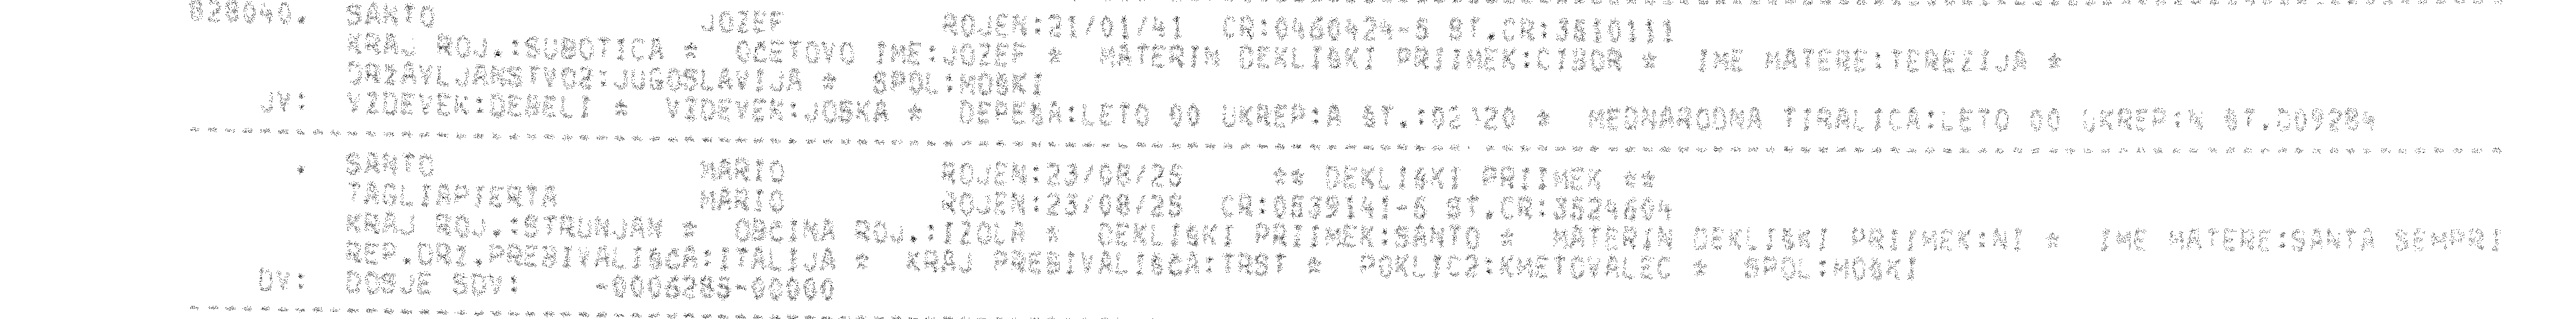 828040. SANTO JOZEF ROJEN:21/01/41 CR:0460424-5 ST.CR:3510111
KRAJ ROJ.:SUBOTICA * OCETOVO IME:JOZEF * MATERIN DEKLIŠKI PRIIMEK:CIBOR * IME MATERE:TEREZIJA *
DRŽAVLJANSTVO2:JUGOSLAVIJA * SPOL:MOŠKI
JV: VZDEVEK:DEBELI * VZDEVEK:JOŠKA * DEPEŠA:LETO 00 UKREP:A ŠT.: * MEDNARODNA TIRALICA:LETO 00 UKREP:N ŠT.D09284
. SANTO MARIO ROJEN:23/08/25 ** DEKLIŠKI PRIIMEK **
TAGLIAPIERTA MARIO ROJEN:23/08/25 CR:0539141-6 ST.CR:3524604
KRAJ ROJ.:STRUNJAN * OBČINA ROJ.:IZOLA * DEKLIŠKI PRIIMEK:SANTO * MATERIN DEKLIŠKI PRIIMEK:NI * IME MATERE:SANTA SEMPRI
REP.DRŽ.PREBIVALIŠČA:ITALIJA * KRAJ PREBIVALIŠČA:TRST * POKLIC2:KMETOVALEC * SPOL:MOŠKI
DV: DOSJE SDV: -0006285-00000